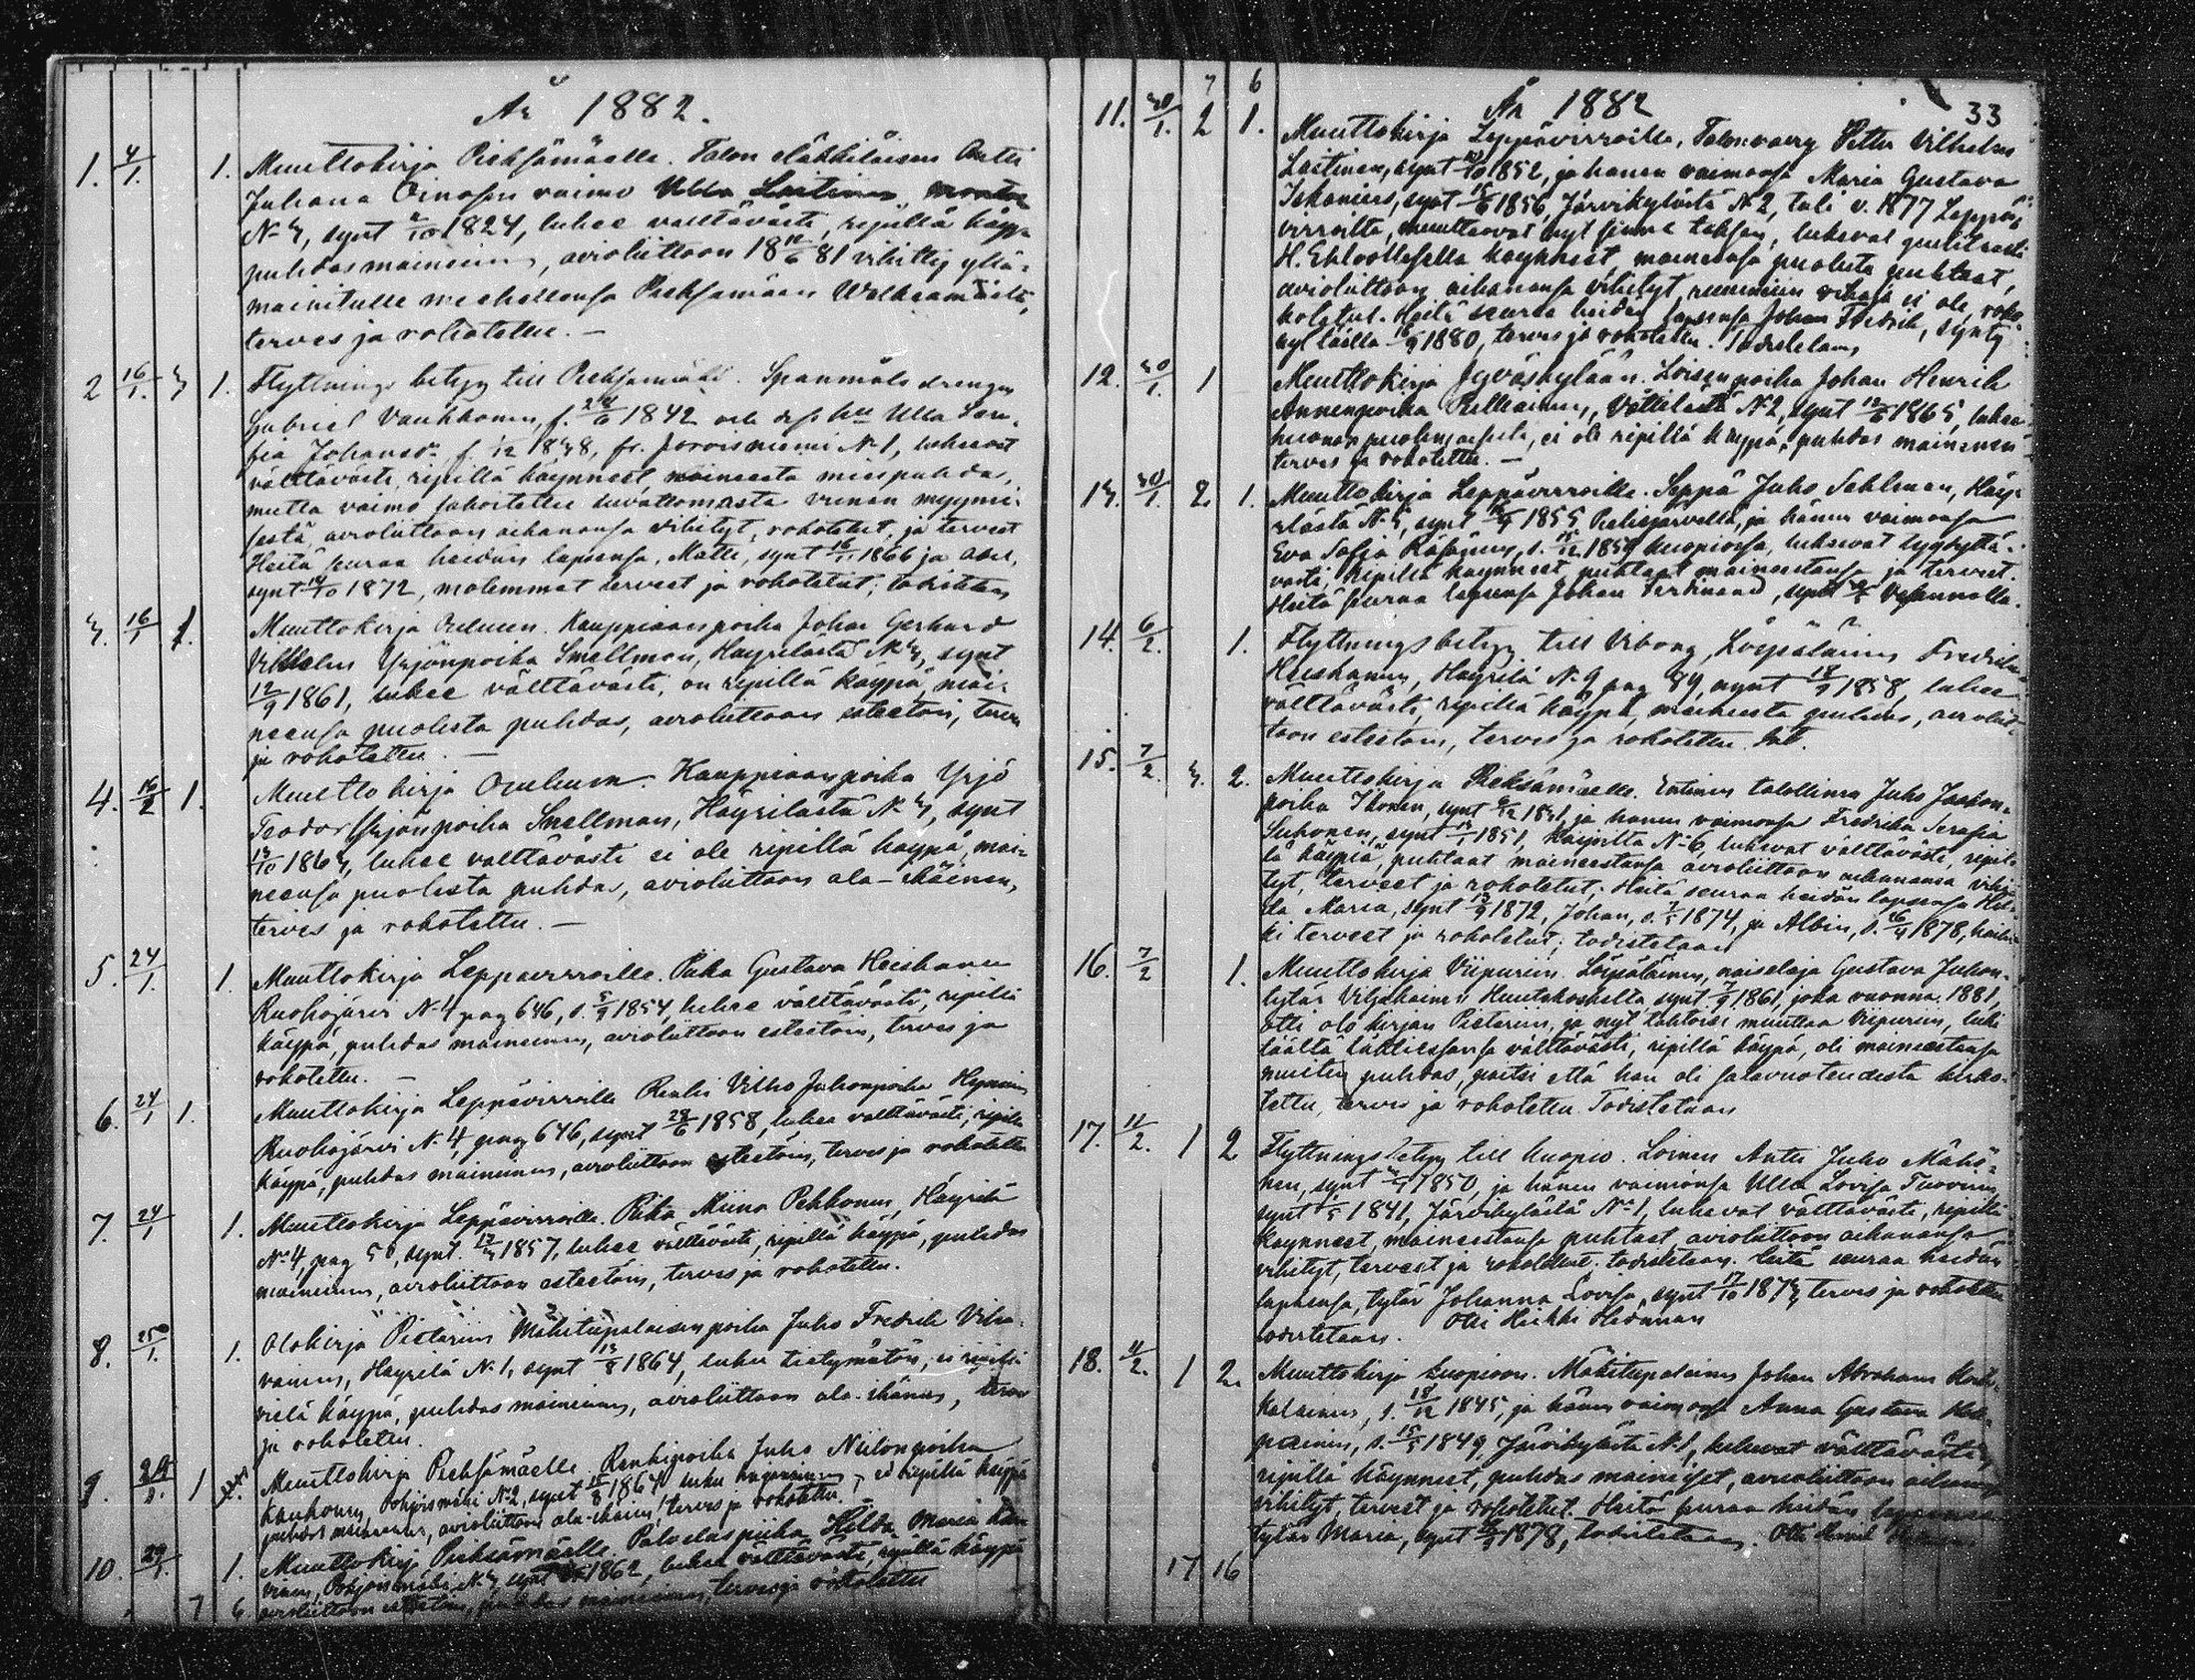 År 1882.
1. 4/1. 1. Muuttokirja Pieksämäelle. Talon eläkkiläisen Antti
Juhana Oinosen vaimo Ulla Laitinen
No 3, synt 2/10 1824, lukee välttävästi, ripillä käypä
puhdasmaineinen, avioliittoon 18 /6 81 vihitty yllä-
mainitulle miehellensä Pieksämäen
terves ja rokotettu. —
2 16/1. 3 1. Flyttnings betyg till Pieksämäki. Spanmåls drengen
Gabriel Vauhkonen, f. 24/6 1842 och dess hu Ulla So-
fia Johansdr f. 1/12 1838, fr. Joroisniemi No 1, lukevat
välttävästi, ripillä käynneet, maineesta mies puhdas,
mutta vaimo sakoitettu luvattomasta viinan myymi-
sestä, avioliittoon aikanansa vihityt, rokotetut, ja terveet
Heitä seuraa heidän lapsensa, Matti, synt 16/11 1866 ja
synt 14/10 1872, molemmat terveet ja rokotetut; todistetaan
3. 16/1 1. Muuttokirja Ouluun. Kauppiaanpoika Johan Gerhard
Vilhelm Yrjönpoika Snellman, Häyrilästä No 3, synt
12/9 1861, lukee välttävästi, on ripillä käypä, mai-
neensa puolesta puhdas, avioliittoon esteetöin, terves
ja rokotettu. —
4. 16/2 1. Muuttokirja Ouluun. Kauppiaanpoika Yrjö
Teodor Yrjönpoika Snellman, Häyrilästä No 3, synt
13/10 1863, lukee välttävästi ei ole ripillä käypä, mai-
neensa puolesta puhdas, avioliittoon ala-ikäinen,
terves ja rokotettu. —
5. 24/1. 1. Muuttokirja Leppävirroille. Piika Gustava Heiskanen
Ruokojärvi No 4 pag 646, s. 5/9 1854, lukee välttävästi, ripillä
käypä, puhdas maineinen, avioliittoon esteetöin, terves ja
rokotettu. —
6. 24/1 1. Muuttokirja Leppävirroille Renki Vilho Juhonpoika Hyvönen
Ruokojärvi No 4, pag 646, synt 28/6 1858, lukee välttävästi, ripillä
käypä, puhdas maineinen, avioliittoon esteetöin, terves ja rokotettu
7. 24/1 1. Muuttokirja Leppävirroille. Piika Miina Pekkonen, Häyrilä
No 4, pag 50, synt. 12/3 1857, lukee välttävästi, ripillä käypä, puhdas
maineinen, avioliittoon esteetöin, terves ja rokotettu.
8. 25/1. 1. Olokirja Pietariin Mäkitupalaisen poika Juho Fredrik
Häyrilä No 1, synt 13/8 1864, lukee tietymätön, ei ripillä
vielä käypä, puhdas maineinen, avioliittoon ala-ikäinen, terves
ja rokotettu.
9. 1 Muuttokirja Pieksämäelle. Renkipoika Juho Niilonpoika
Kauhonen, No 2, synt 15/8 1864, ei ripillä käypä
puhdas maineinen, avioliittoon ala-ikäinen, terves ja rokotettu.
10. 29/1. 1. Muuttokirja Pieksämäelle. Palveluspiika Hilda Maria
No 3, synt 1862, lukee välttävästi, ripillä käypä
avioliittoon esteetöin, puhdas maineinen, terves ja rokotettu
7 6
7 6
År 1882 33
11. 30/1. 2 1. Muuttokirja Leppävirroille, Talonvävy Petter Vilhelm
Laitinen, synt 1852, ja hänen vaimonsa Maria Gustava
Iskanius, synt 15/6 1856, Järvikylästä No 2, tuli v. 1877 Leppä-
virroilta, muuttaavat nyt sinne takasin, lukevat
H. Ehtoollisella käynneet, maineensa puolesta puhtaat,
avioliittoon aikanansa vihityt, ei ole, roko-
kotetut. Heitä seuraa heidän lapsensa Johan Fredrik, synty
nyt täällä 16/9 1880, terves ja rokotettu. Todistetaan
12. 30/1. 1 Muuttokirja Jyväskylään. Loisen poika Johan Henrik
Annanpoika No 2, synt 12/6 1865, lukee
ei ole ripillä käypä, puhdas maineinen
terves ja rokotettu. —
13. 30/1. 2 1. Muuttokirja Leppävirroille. Seppä Juho Sahlman, Häy-
rilästä No 5, synt 1855 Pielisjärvellä, ja hänen vaimonsa
Eva Sofia Räsänen, s. 15/12 1859 Kuopiossa, lukevat tyydyttä-
västi, ripillä käynneet puhtaat maineestansa ja terveet.
Heitä seuraa lapsensa Johan Ferdinand, synt
14. 6/2. 1. Flyttningsbetyg till Viborg, Löysäläinen Fredrika
Heiskanen, Häyrilä No 9 pag 89, synt 18/9 1858, lukee
välttävästi, ripillä käypä, maineesta puhdas, avioliit-
toon esteetöin, terves ja rokotettu.
15. 7/2. 3. 2. Muuttokirja Pieksämäelle. Entinen talollinen Juho Jaakon-
poika Ikonen, synt 1831, ja hänen vaimonsa Fredrika Serafia
Suhonen, synt 1851, No 6, lukevat välttävästi, ripil-
lä käypiä, puhtaat maineestansa avioliittoon aikanansa vihi-
tyt, terveet ja rokotetut; Heitä seuraa heidän lapsensa Hil-
da Maria, synt 13/9 1872, Johan, s. 7/5 1874, ja Albin, s. 1878, kaik-
ki terveet ja rokotetut; todistetaan
16. 7/2 1. Muuttokirja Viipuriin. Löysäläinen, naiseläjä Gustava Juhon-
tytär Viljakainen Huutokoskelta synt. 7/9 1861, joka vuonna 1881,
otti olokirjan Pietariin, ja nyt tahtoisi muuttaa Viipuriin, luki
täältä lähtiessänsä välttävästi, ripillä käypä, oli maineestansa
muiten puhdas, paitsi että hän oli salavuoteudesta kirko-
tettu, terves ja rokotettu. Todistetaan
17. 11/2. 1 2 Flyttnings betyg till Kuopio. Loinen Antti Juho Mähö-
nen, synt 1850, ja hänen vaimonsa Ulla Lovisa Tuovinen
synt 1/5 1841, Järvikylästä No 1, lukevat välttävästi, ripillä
käynneet, maineestansa puhtaat, avioliittoon aikanansa
vihityt, terveet ja rokotetut. todistetaan. Heitä seuraa heidän
lapsensa, tytär Johanna Lovisa, synt 17/10 1873, terves ja rokotettu
todistetaan. Otti Heikki Hedman
18. 11/2. 1 2. Muuttokirja Kuopioon. Mäkitupalainen Johan Abraham
s. 18/12 1845, ja hänen vaimonsa Anna Gustava
s. 15/5 1849, Järvikylästä No 1, lukevat välttävästi,
ripillä käynneet, puhdas maineiset, avioliittoon
vihityt, terveet ja rokotetut. Heitä seuraa heidän
tytär Maria, synt 1878, todistetaan. Otti
17 16